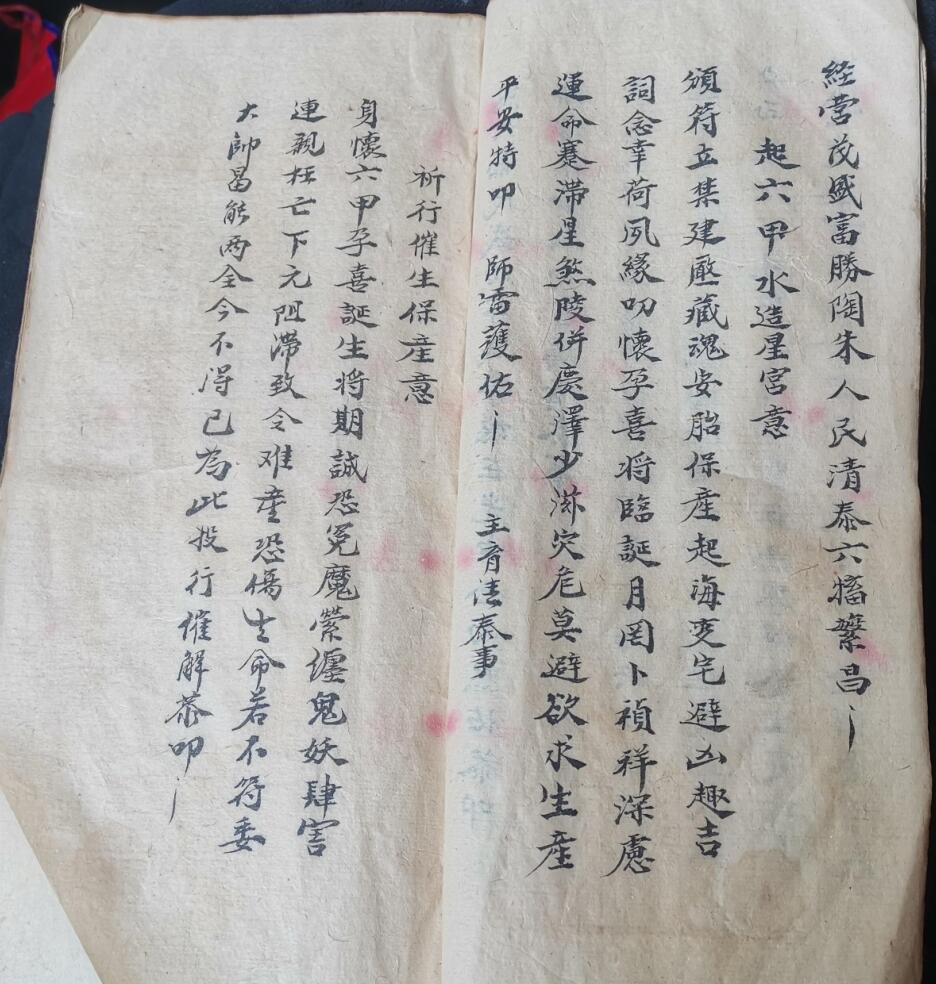 経营茂盛富勝陶朱人民清泰六畜繁昌
起六甲水造星宮意
頒符立禁建壓藏魂安胎保產起海变宅避凶趣吉
詞念幸荷夙緣叨懷孕喜将臨誕月罔卜禎祥深慮
運命蹇滯星煞陵併慶澤少滋灾危莫避欲求生産
平安特叩 師雷護佑 主育清泰事
祈行催生保産意
身懷六甲孕喜誕生将期誠恐冤魔縈纏鬼妖肆害
連親枉亡下元阻滯致令难產恐傷生命若不符委
大帥曷能两全今不得已為此投行催解恭叩